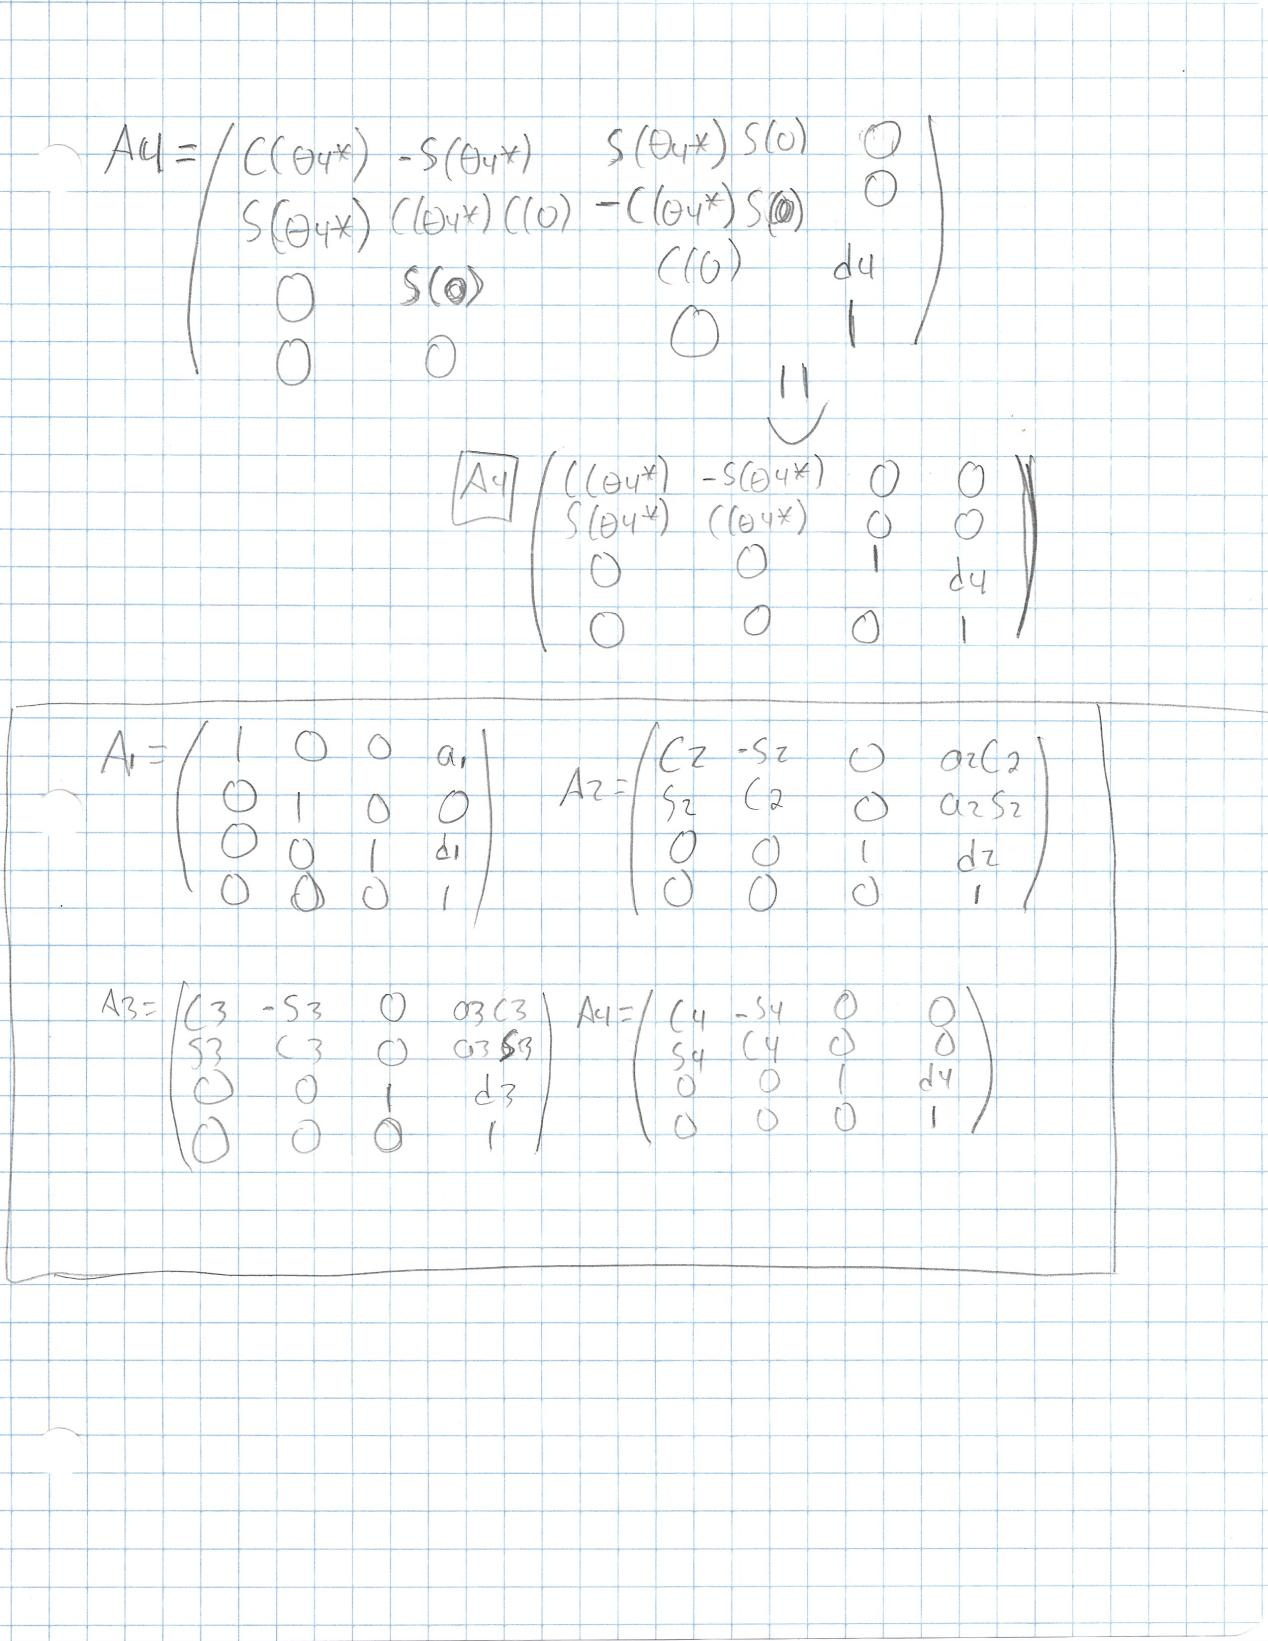 A4 = ( C(θ4*) -S(θ4*) S(θ4*) S(0) 0
S(θ4*) C(θ4*) C(0) -C(θ4*) S(0) 0
0 S(0) C(0) d4
0 0 0 1 )
A4 ( C(θ4*) -S(θ4*) 0 0
S(θ4*) C(θ4*) 0 0
0 0 1 d4
0 0 0 1 )
A1 = ( 1 0 0 a1
0 1 0 0
0 0 1 d1
0 0 0 1 )
A2 = ( C2 -S2 0 a2C2
S2 C2 0 a2S2
0 0 1 d2
0 0 0 1 )
A3 = ( C3 -S3 0 a3C3
S3 C3 0 a3S3
0 0 1 d3
0 0 0 1 )
A4 = ( C4 -S4 0 0
S4 C4 0 0
0 0 1 d4
0 0 0 1 )